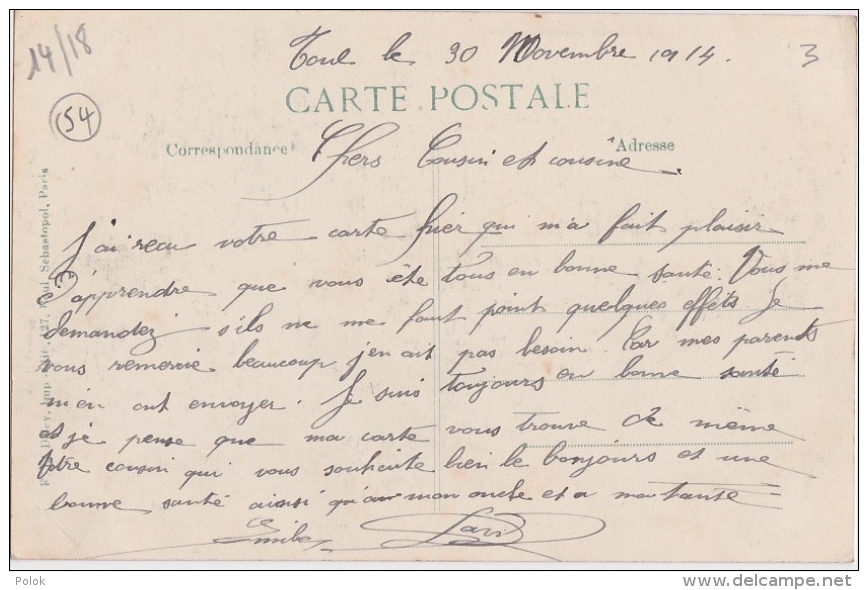 14/18
Toul le 30 Novembre 1914.
3
54
CARTE POSTALE
Correspondance
Adresse
Chers Cousin et cousine
J'ai reçu votre carte hier qui m'a fait plaisir
D'apprendre que vous ête tous en bonne santé. Vous me
demandez s'ils ne me faut point quelques effets. Je
vous remercie beaucoup j'en ait pas besoin. Car mes parents
m'en ont envoyer. Je suis toujours en bonne santé
et je pense que ma carte vous trouve de même
Votre cousin qui vous souhaite bien le bonjours et une
bonne santé ainsi qu'a mon oncle et a ma tante
127, Boul. Sébastopol, Paris
Polok
delcampe.net